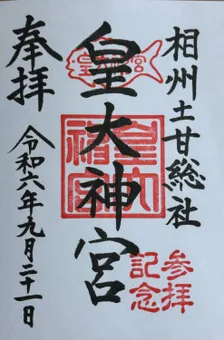 相州土甘総社
皇大神宮
奉拝
令和六年九月二十一日
参拝
記念